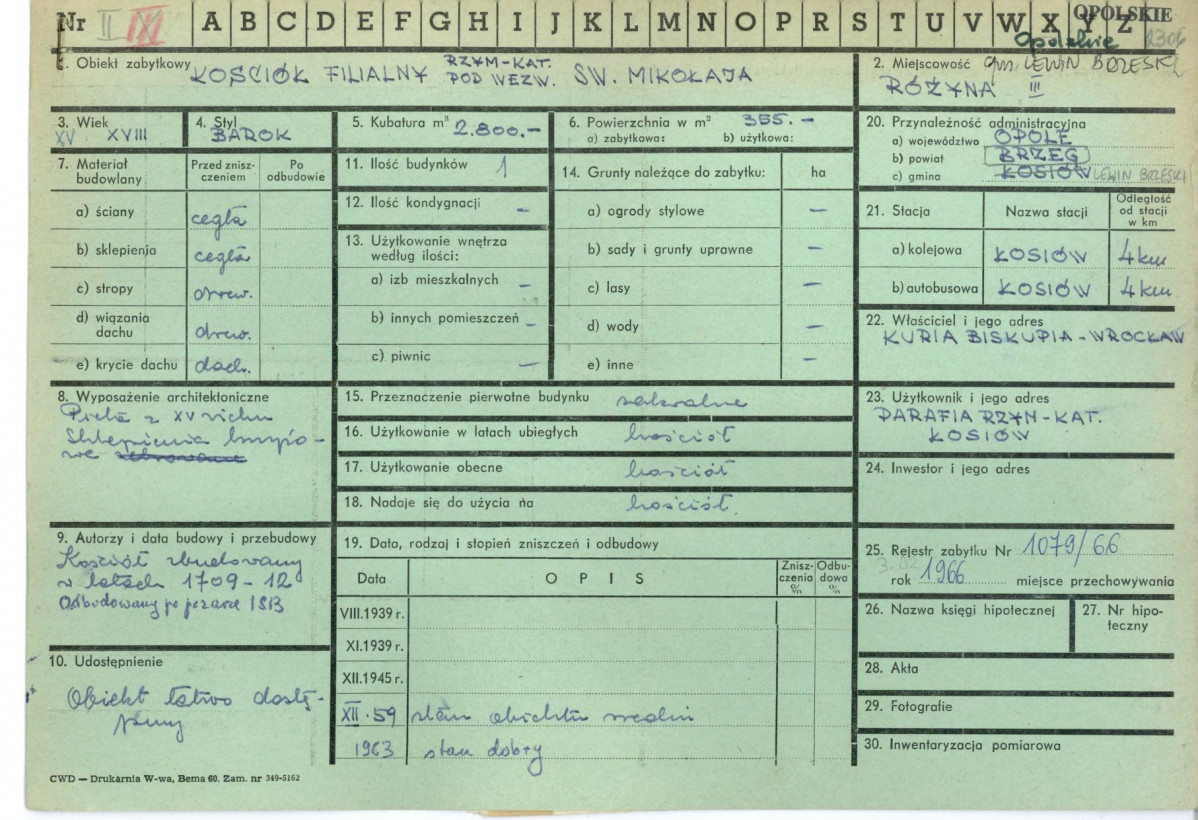 Nr II III A B C D E F G H I J K L M N O P R S T U V W X Y Z OPOLSKIE
Opolskie 2306
1. Obiekt zabytkowy KOŚCIÓŁ FILIALNY RZYM-KAT. POD WEZW. ŚW. MIKOŁAJA
2. Miejscowość gm. LEWIN BRZESKI
RÓŻYNA III
3. Wiek
XV XVIII
4. Styl
BAROK
5. Kubatura m³ 2.800.-
6. Powierzchnia w m² 355.-
a) zabytkowa: b) użytkowa:
7. Materiał budowlany
Przed zniszczeniem
Po odbudowie
a) ściany cegła
b) sklepienia cegła
c) stropy drew.
d) wiązania dachu drew.
e) krycie dachu dach.
8. Wyposażenie architektoniczne
Pieta z XV wieku
Sklepienia krzyżo-
we żebrowane
9. Autorzy i data budowy i przebudowy
Kościół zbudowany
w latach 1709-12
Odbudowany po pożarze 1813
10. Udostępnienie
Obiekt łatwo dostę-
pny
11. Ilość budynków 1
12. Ilość kondygnacji –
13. Użytkowanie wnętrza
według ilości:
a) izb mieszkalnych –
b) innych pomieszczeń –
c) piwnic –
14. Grunty należące do zabytku: ha
a) ogrody stylowe –
b) sady i grunty uprawne –
c) lasy –
d) wody –
e) inne –
15. Przeznaczenie pierwotne budynku sakralne
16. Użytkowanie w latach ubiegłych kościół
17. Użytkowanie obecne kościół
18. Nadaje się do użycia na kościół.
19. Data, rodzaj i stopień zniszczeń i odbudowy
Data OPIS Zniszczenia % Odbudowa %
VIII.1939 r.
XI.1939 r.
XII.1945 r.
XII.59 stan obiektu średni
1963 stan dobry
20. Przynależność administracyjna
a) województwo OPOLE
b) powiat BRZEG
c) gmina ŁOSIÓW LEWIN BRZESKI
21. Stacja Nazwa stacji Odległość od stacji w km
a) kolejowa ŁOSIÓW 4 km
b) autobusowa ŁOSIÓW 4 km
22. Właściciel i jego adres
KURIA BISKUPIA - WROCŁAW
23. Użytkownik i jego adres
PARAFIA RZYM-KAT.
ŁOSIÓW
24. Inwestor i jego adres
25. Rejestr zabytku Nr 1079/66
rok 1966 miejsce przechowywania
26. Nazwa księgi hipotecznej
27. Nr hipoteczny
28. Akta
29. Fotografie
30. Inwentaryzacja pomiarowa
CWD — Drukarnia W-wa, Bema 60. Zam. nr 349-5162